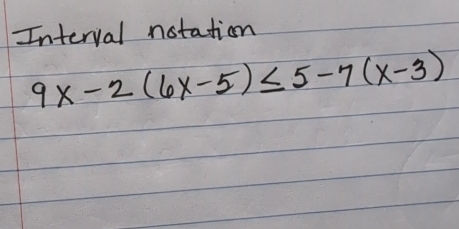 Interval notation
9x-2(6x-5)≤5-7(x-3)